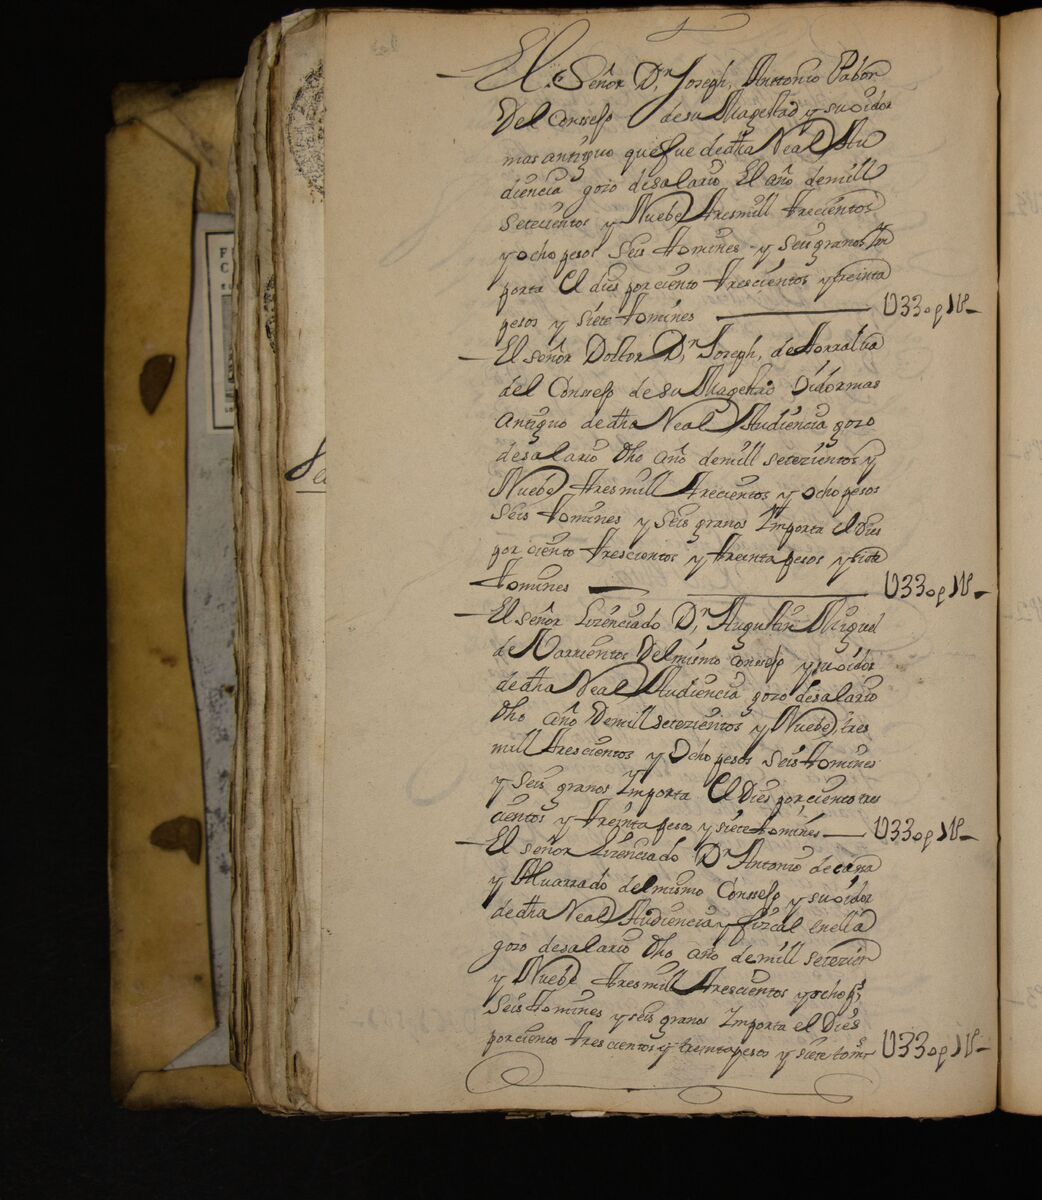 El Señor Dn Joseph, Anttonio Pabon
Del Conssejo de su Magestad y su oidor
mas antiguo que fue de dha Real Au
diencia gozo de salario El año de mill
Setecientos y Nuebe tresmill trecientos
y ocho pesos Seis tomines y Seis granos Im
porta El dies por ciento trescientos y treinta
pesos y siete tomines U330p
El señor Dottor Dn Joseph, de torralva
del Conssejo de su Magestad Oidor mas
Antiguo de dha Real Audiencia gozo
de salario dho año de mill setezientos y
Nuebe tresmill trecientos y ocho pesos
Seis tomines y Seis granos Importa el Dies
por ciento trescientos y treinta pesos y siete
tomines U330p
El señor Lizenciado Dn Augustin Miguel
de Barrientos Del mismo Conssejo y su oidor
de dha Real Audiencia gozo de salario
dho año De mill setezientos y Nuebe, tres
mill trescientos y Ocho pesos Seis tomines
y Seis granos Importa El Dies por ciento tres
cientos y treinta pesos y siete tomines U330p
El señor Lizenciado Dn Antonio de
y Alvarrado del mismo Conssejo y su oidor
de dha Real Audiencia y fizcal en ella
gozo de salario dho año de mill setezios
y Nuebe tresmill trescientos y ocho ps
Seis tomines y seis granos Importa el Dies
por ciento trescientos y treinta pesos y siete toms U330p